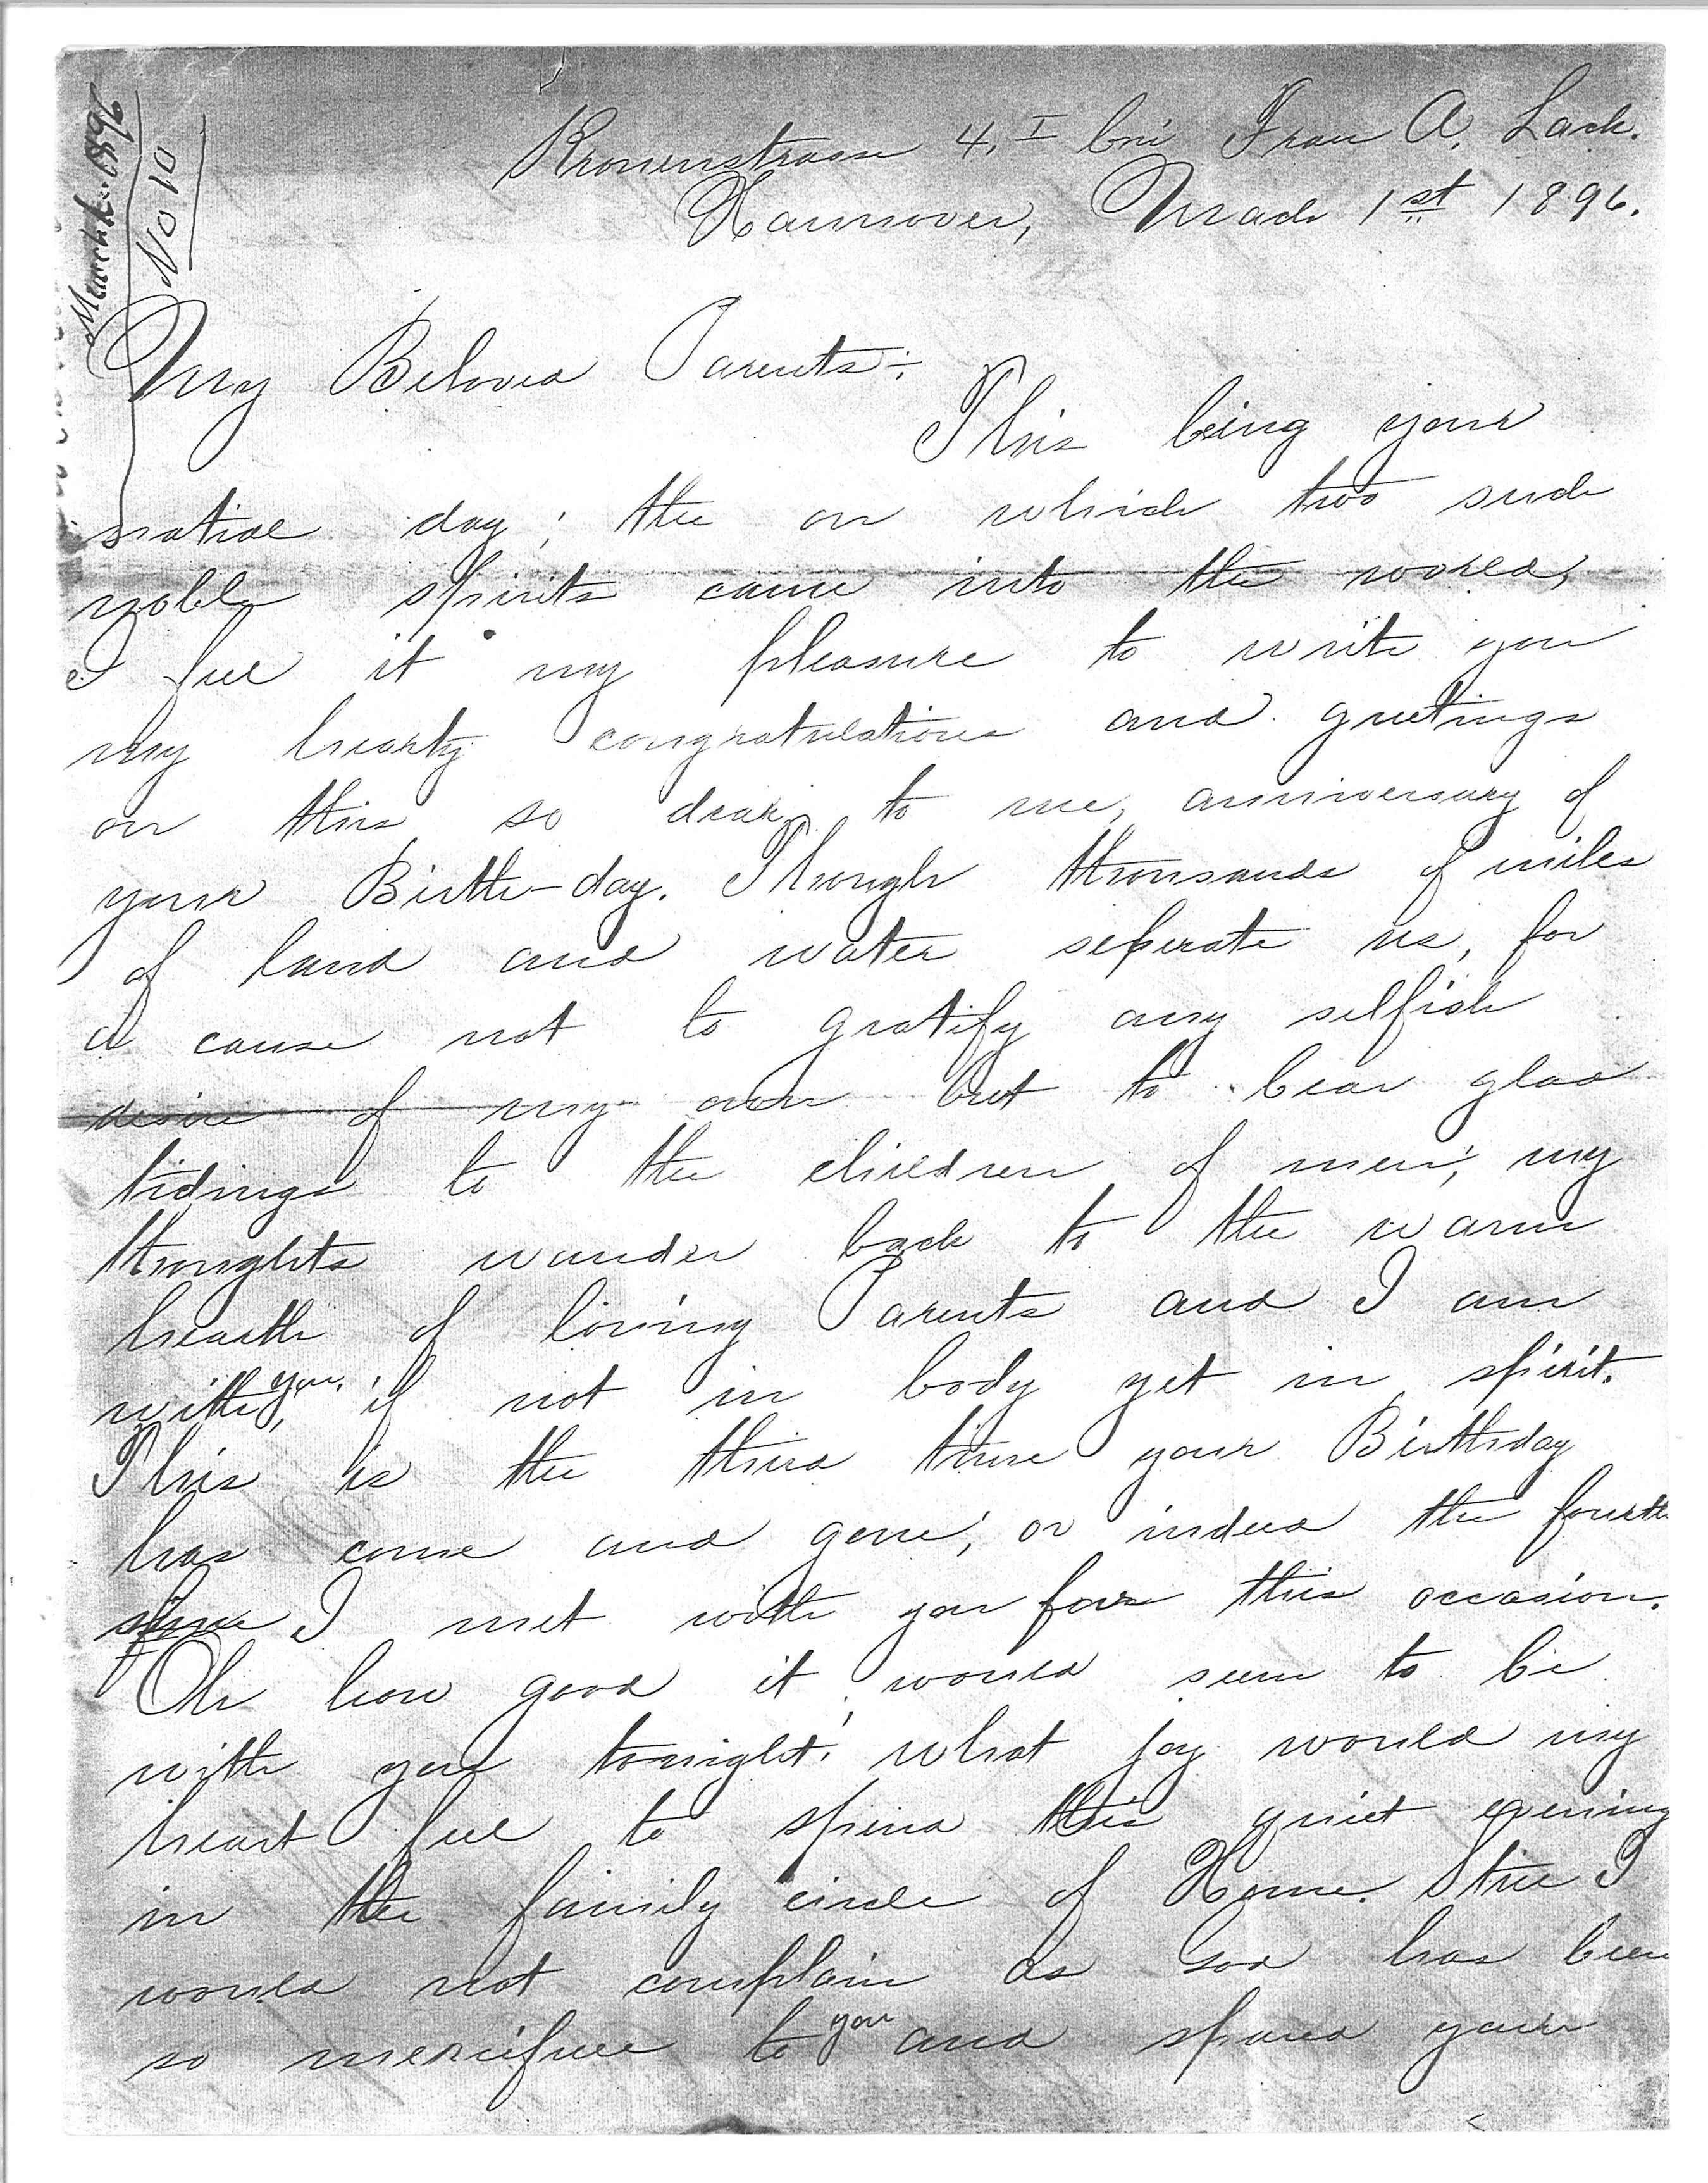 March. 1896
No 10
Kronenstrasse 4, I bei Frau A. Lack.
Hannover, March 1st 1896.
My Beloved Parents:
This being your
natial day; the on which two such
noble spirits came into the world,
I feel it my pleasure to write you
my hearty congratulations and greetings
on this so dear, to me, anniversary of
your Birth-day. Though thousands of miles
of land and water seperate us, for
a cause not to gratify any selfish
desire of my own but to bear glad
tidings to the children of men; my
thoughts wander back to the warm
hearth of loving Parents and I am
with you, if not in body yet in spirit.
This is the third time your Birthday
has come and gone; or indeed the fourth
since I met with you for this occasion.
Oh how good it would seem to be
with you tonight! what joy would my
heart feel to spend this quiet evening
in the family circle of Home. Still I
would not complain as God has been
so mercifull to you and spared your